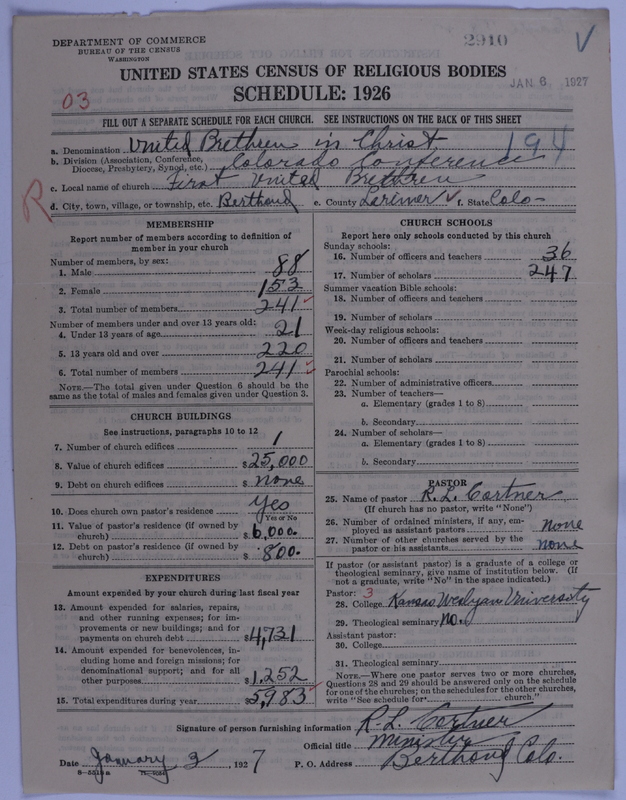 DEPARTMENT OF COMMERCE
BUREAU OF THE CENSUS
WASHINGTON
2910
V
UNITED STATES CENSUS OF RELIGIOUS BODIES
SCHEDULE: 1926
JAN 6, 1927
03
FILL OUT A SEPARATE SCHEDULE FOR EACH CHURCH. SEE INSTRUCTIONS ON THE BACK OF THIS SHEET
a. Denomination United Brethren in Christ 194
b. Division (Association, Conference, Diocese, Presbytery, Synod, etc.) Colorado Conference
c. Local name of church First United Brethren
R
d. City, town, village, or township, etc. Berthoud e. County Larimer f. State Colo-
MEMBERSHIP
Report number of members according to definition of
member in your church
Number of members, by sex:
1. Male 88
2. Female 153
3. Total number of members 241
Number of members under and over 13 years old:
4. Under 13 years of age 21
5. 13 years old and over 220
6. Total number of members 241
NOTE.—The total given under Question 6 should be the
same as the total of males and females given under Question 3.
CHURCH BUILDINGS
See instructions, paragraphs 10 to 12
7. Number of church edifices 1
8. Value of church edifices $25,000
9. Debt on church edifices $ none
10. Does church own pastor's residence Yes
Yes or No
11. Value of pastor's residence (if owned by
church) $ 6,000.
12. Debt on pastor's residence (if owned by
church) $ 800.
EXPENDITURES
Amount expended by your church during last fiscal year
13. Amount expended for salaries, repairs,
and other running expenses; for im-
provements or new buildings; and for
payments on church debt $4,731
14. Amount expended for benevolences, in-
cluding home and foreign missions; for
denominational support; and for all
other purposes $1,252
15. Total expenditures during year $5,983
CHURCH SCHOOLS
Report here only schools conducted by this church
Sunday schools:
16. Number of officers and teachers 36
17. Number of scholars 247
Summer vacation Bible schools:
18. Number of officers and teachers
19. Number of scholars
Week-day religious schools:
20. Number of officers and teachers
21. Number of scholars
Parochial schools:
22. Number of administrative officers
23. Number of teachers—
a. Elementary (grades 1 to 8)
b. Secondary
24. Number of scholars—
a. Elementary (grades 1 to 8)
b. Secondary
PASTOR
25. Name of pastor R. L. Cortner
(If church has no pastor, write "None")
26. Number of ordained ministers, if any, em-
ployed as assistant pastors none
27. Number of other churches served by the
pastor or his assistants none
If pastor (or assistant pastor) is a graduate of a college or
theological seminary, give name of institution below. (If
not a graduate, write "No" in the space indicated.)
Pastor: 3
28. College Kansas Wesleyan University
29. Theological seminary No.
Assistant pastor:
30. College
31. Theological seminary
NOTE.—Where one pastor serves two or more churches,
Questions 28 and 29 should be answered only on the schedule
for one of the churches; on the schedules for the other churches,
write "See schedule for church."
Signature of person furnishing information R L Cortner
Official title Minister
Date January 3, 1927 P. O. Address Berthoud Colo.